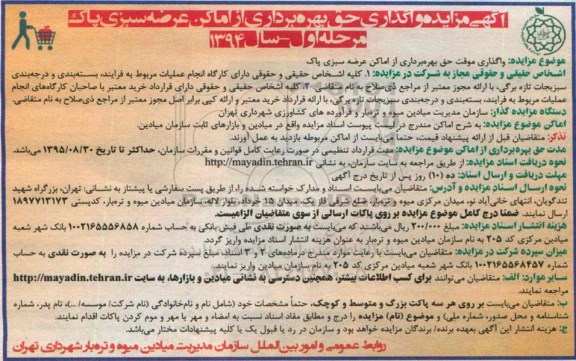 آگهی مزایده واگذاری حق بهره‌برداری از اماکن عرضه سبزی پاک
مرحله اول-سال ۱۳۹۴
موضوع مزایده: واگذاری موقت حق بهره‌برداری از اماکن عرضه سبزی پاک
اشخاص حقیقی و حقوقی مجاز به شرکت در مزایده: ۱. کلیه اشخاص حقیقی و حقوقی دارای کارگاه انجام عملیات مربوط به فرآیند، بسته‌بندی و درجه‌بندی
سبزیجات تازه برگی، با ارائه مجوز معتبر از مراجع ذی‌صلاح به نام متقاضی. ۲. کلیه اشخاص حقیقی و حقوقی دارای قرارداد خرید معتبر با صاحبان کارگاه‌های انجام
عملیات مربوط به فرآیند، بسته‌بندی و درجه‌بندی سبزیجات تازه برگی، با ارائه قرارداد خرید معتبر و ارائه کپی برابر اصل مجوز معتبر از مراجع ذی‌صلاح به نام متقاضی.
دستگاه مزایده گذار: سازمان مدیریت میادین میوه و تره‌بار و فرآورده های کشاورزی شهرداری تهران
اماکن موضوع مزایده: به شرح اماکن مندرج در لیست پیوست اسناد مزایده واقع در میادین و بازارهای ثابت سازمان میادین.
تذکر: متقاضیان قبل از ارائه پیشنهاد قیمت، حتماً می‌بایست از اماکن مربوطه بازدید به عمل آورند.
مدت حق بهره‌برداری از اماکن موضوع مزایده: مدت قرارداد تنظیمی در صورت رعایت کامل قوانین و مقررات سازمان، حداکثر تا تاریخ ۱۳۹۵/۰۸/۳۰ می‌باشد.
نحوه دریافت اسناد مزایده: از طریق مراجعه به سایت سازمان، به نشانی http://mayadin.tehran.ir
مهلت دریافت و ارسال اسناد: ده (۱۰) روز پس از تاریخ درج آگهی
نحوه ارسال اسناد مزایده و آدرس: متقاضیان می‌بایست اسناد و مدارک خواسته شده را، از طریق پست سفارشی یا پیشتاز به نشانی: تهران، بزرگراه شهید
تندگویان، انتهای خانی‌آباد نو، میدان مرکزی میوه و تره‌بار، ضلع شرقی فاز یک، میدان ۱۵ خرداد، بلوار لاله، سازمان میادین میوه و تره‌بار، کدپستی ۱۸۹۷۷۱۳۱۷۳
ارسال نمایند. ضمناً درج کامل موضوع مزایده بر روی پاکات ارسالی از سوی متقاضیان الزامیست.
هزینه انتشار اسناد مزایده: مبلغ ۲۰۰/۰۰۰ ریال می‌باشند که می‌بایست به صورت نقدی طی فیش بانکی به حساب شماره ۱۰۰۲۱۶۵۵۵۶۸۵۸ بانک شهر شعبه
میادین مرکزی کد ۲۰۵ به نام سازمان میادین میوه و تره‌بار به عنوان هزینه انتشار اسناد مزایده واریز گردد.
میزان سپرده شرکت در مزایده: متقاضیان می‌بایست با رعایت موارد مندرج در ماده‌های ۲ و ۳ اسناد، مبلغ سپرده شرکت در مزایده را به صورت نقدی به حساب
شماره ۱۰۰۲۱۶۵۵۶۸۴۵۷ بانک شهر شعبه میادین مرکزی کد ۲۰۵ به نام سازمان میادین واریز نمایند.
سایر موارد: الف: متقاضیان می توانند برای کسب اطلاعات بیشتر، همچنین دسترسی به نشانی میادین و بازارها، به سایت http://mayadin.tehran.ir
مراجعه نمایند.
ب: متقاضیان می‌بایست بر روی هر سه پاکت بزرگ و متوسط و کوچک، حتماً مشخصات خود (شامل نام و نام‌خانوادگی (نام شرکت/ موسسه/ ...)، نام پدر، شماره
شناسنامه و محل صدور، شماره ملی) و موضوع (نام) مزایده را درج و مطابق مفاد اسناد نسبت به امضاء و مهر یا مهر و موم کردن پاکات اقدام نمایند.
ج: هزینه انتشار این آگهی بعهده برنده/ برندگان مزایده خواهد بود و سازمان در رد یا قبول یک یا کلیه پیشنهادات مختار می‌باشد.
روابط عمومی و امور بین‌الملل سازمان مدیریت میادین میوه و تره‌بار شهرداری تهران